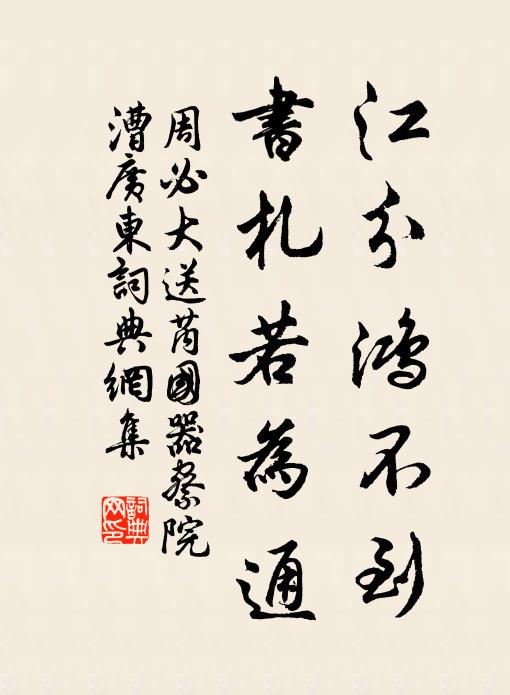 江分鴻不到
書札若為通
周必大送芮國器察院
漕廣東詞典網集
詞典
网印